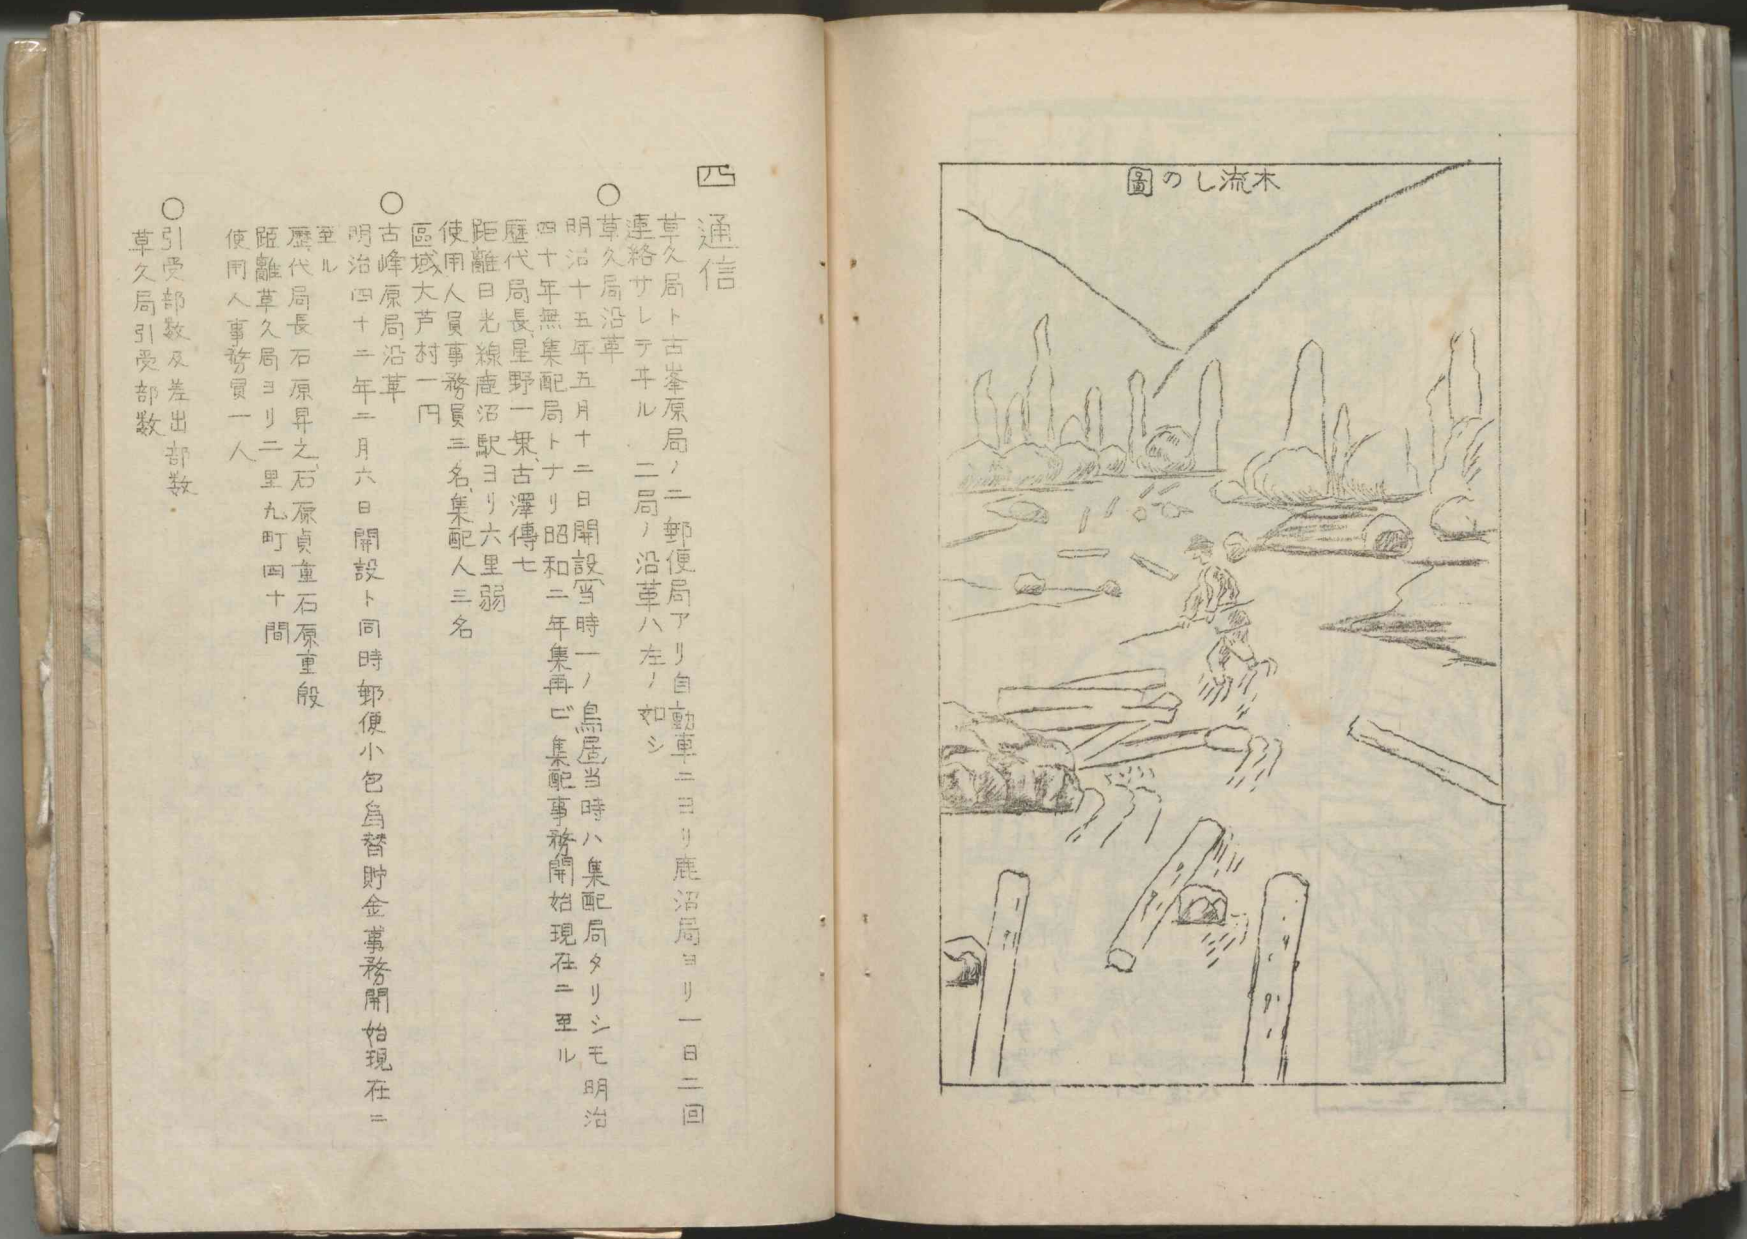 木流しの圖
四 通信
草久局ト古峯原局ノ二郵便局アリ自動車ニヨリ鹿沼局ヨリ一日二回
連絡サレテヰル 二局ノ沿革ハ左ノ如シ
○草久局沿革
明治十五年五月十二日開設當時一ノ鳥居当時ハ集配局タリシモ明治
四十年無集配局トナリ昭和二年集再ビ集配事務開始現在ニ至ル
歴代局長、星野一乗、古澤傳七
距離日光線鹿沼駅ヨリ六里弱
使用人員事務員三名、集配人三名
區域大芦村一円
○古峰原局沿革
明治四十二年二月六日開設ト同時郵便小包為替貯金事務開始現在ニ
至ル
歴代局長石原昇之、石原貞重石原重殷
距離草久局ヨリ二里九町四十間
使用人事務員一人
○引受部数及差出部数
草久局引受部数